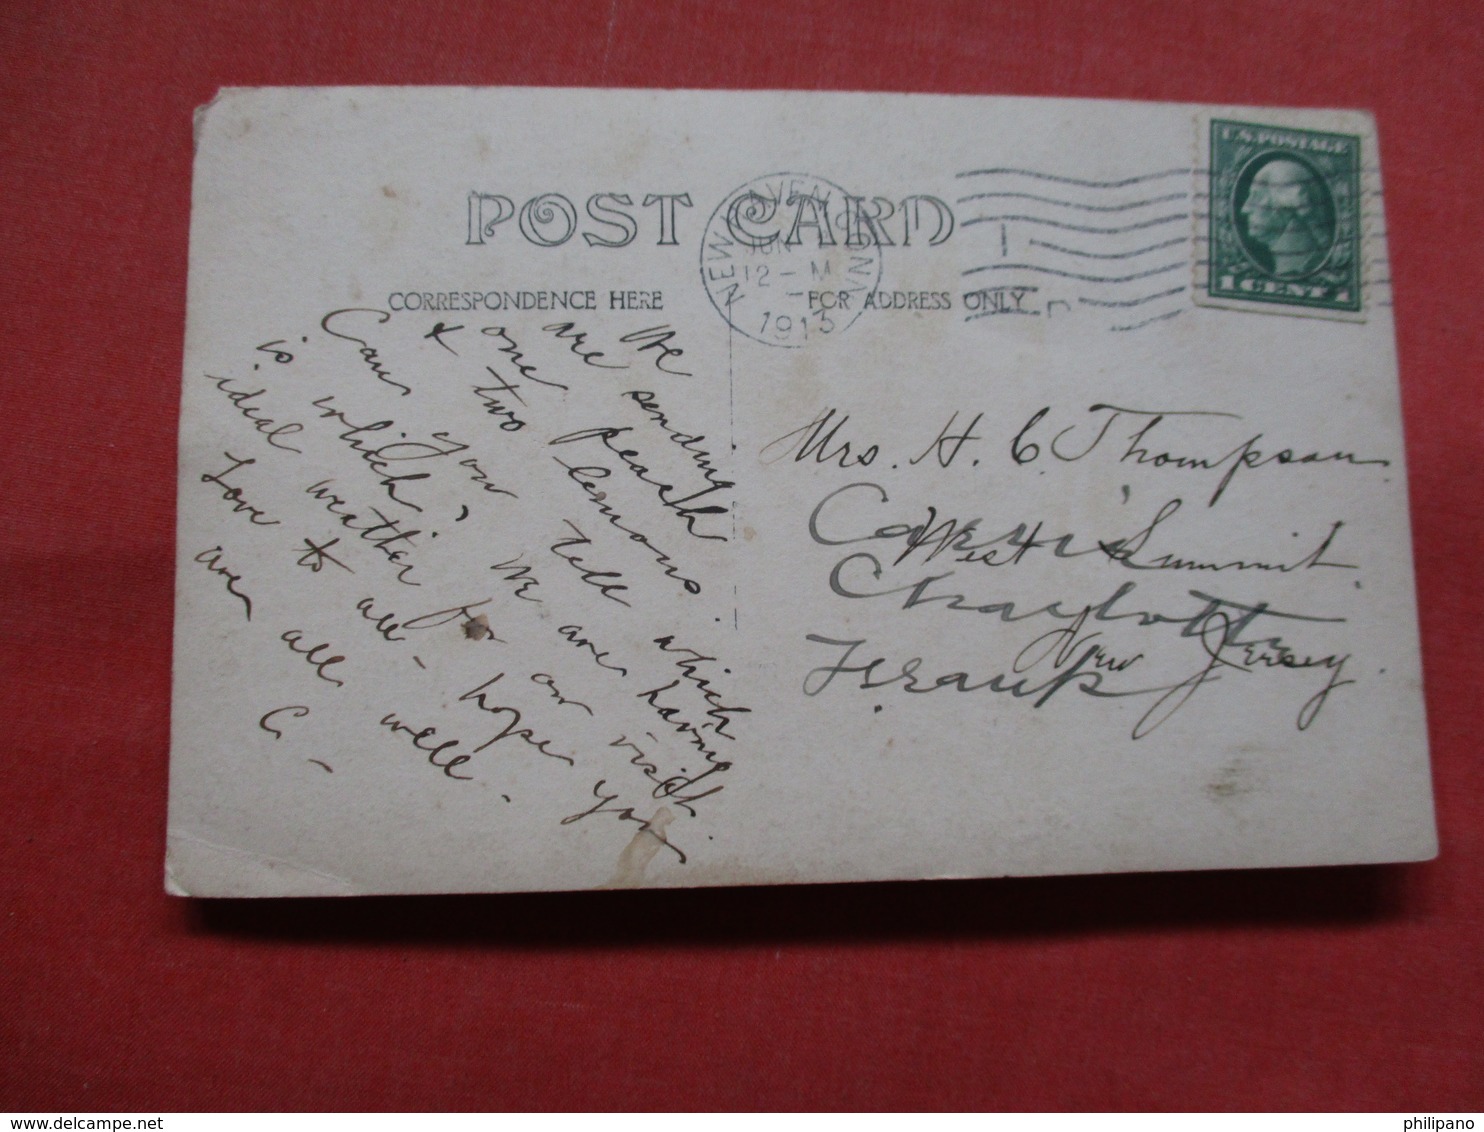 U.S. POSTAGE
1 CENT 1
POST CARD
NEW HAVEN CONN
JUN
12 - M
1915
CORRESPONDENCE HERE
FOR ADDRESS ONLY
We
are sending
one peach
& two lemons.
Can you tell which
is which? We are having
ideal weather for our visit.
Love to all - hope you
are all well -
C -
Mrs. H. C. Thompson
West Summit.
New Jersey.
Charlotte
Frank
philipano